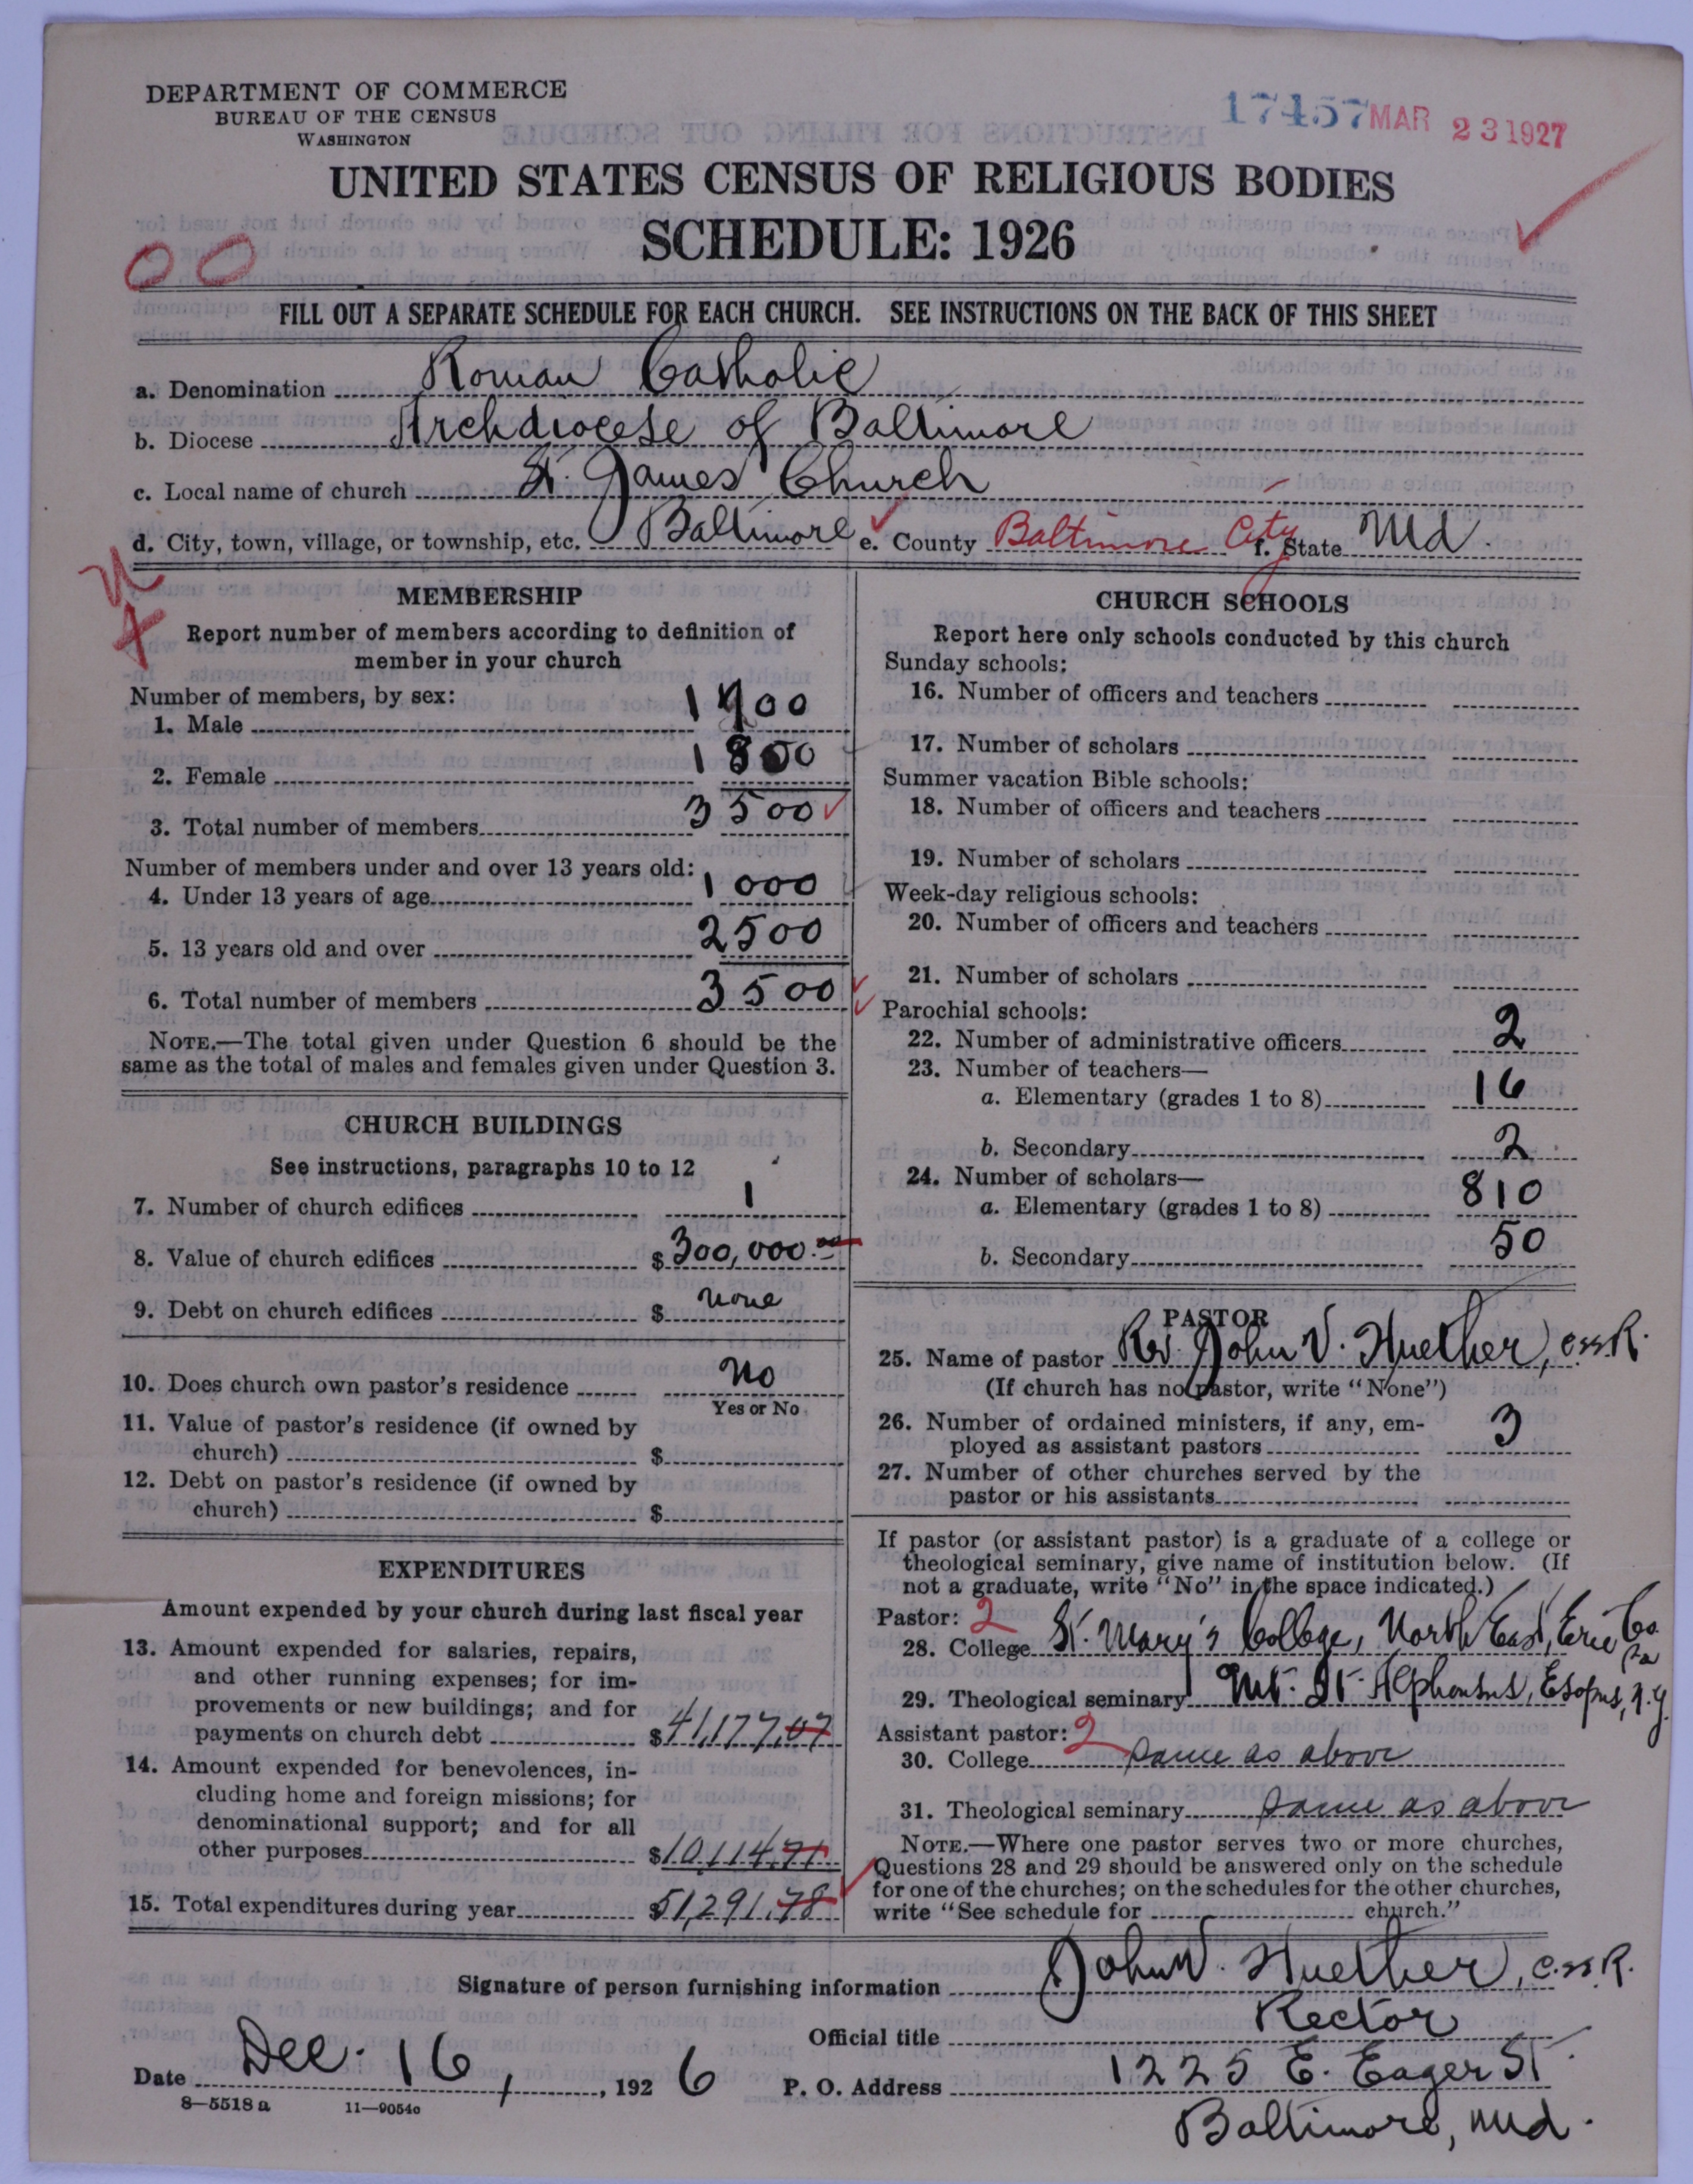 DEPARTMENT OF COMMERCE
BUREAU OF THE CENSUS
WASHINGTON
17457 MAR 23 1927
UNITED STATES CENSUS OF RELIGIOUS BODIES
SCHEDULE: 1926
00
FILL OUT A SEPARATE SCHEDULE FOR EACH CHURCH. SEE INSTRUCTIONS ON THE BACK OF THIS SHEET
a. Denomination Roman Catholic
b. Diocese Archdiocese of Baltimore
c. Local name of church St. James Church
d. City, town, village, or township, etc. Baltimore e. County Baltimore City f. State Md.
MEMBERSHIP
Report number of members according to definition of
member in your church
Number of members, by sex:
1. Male 1700
2. Female 1800
3. Total number of members 3500
Number of members under and over 13 years old:
4. Under 13 years of age 1000
5. 13 years old and over 2500
6. Total number of members 3500
NOTE.—The total given under Question 6 should be the
same as the total of males and females given under Question 3.
CHURCH BUILDINGS
See instructions, paragraphs 10 to 12
7. Number of church edifices 1
8. Value of church edifices $300,000.00
9. Debt on church edifices $ none
10. Does church own pastor's residence No
Yes or No
11. Value of pastor's residence (if owned by
church) $
12. Debt on pastor's residence (if owned by
church) $
EXPENDITURES
Amount expended by your church during last fiscal year
13. Amount expended for salaries, repairs,
and other running expenses; for im-
provements or new buildings; and for
payments on church debt $41,177.07
14. Amount expended for benevolences, in-
cluding home and foreign missions; for
denominational support; and for all
other purposes $10,114.71
15. Total expenditures during year $51,291.78
CHURCH SCHOOLS
Report here only schools conducted by this church
Sunday schools:
16. Number of officers and teachers
17. Number of scholars
Summer vacation Bible schools:
18. Number of officers and teachers
19. Number of scholars
Week-day religious schools:
20. Number of officers and teachers
21. Number of scholars
Parochial schools:
22. Number of administrative officers 2
23. Number of teachers—
a. Elementary (grades 1 to 8) 16
b. Secondary 2
24. Number of scholars—
a. Elementary (grades 1 to 8) 810
b. Secondary 50
PASTOR
25. Name of pastor Rev. John V. Huether, C.SS.R.
(If church has no pastor, write "None")
26. Number of ordained ministers, if any, em-
ployed as assistant pastors 3
27. Number of other churches served by the
pastor or his assistants
If pastor (or assistant pastor) is a graduate of a college or
theological seminary, give name of institution below. (If
not a graduate, write "No" in the space indicated.)
Pastor: 2
28. College St. Mary's College, North East, Erie Co. Pa
29. Theological seminary Mt. St. Alphonsus, Esopus, N.Y.
Assistant pastor: 2
30. College same as above
31. Theological seminary same as above
NOTE.—Where one pastor serves two or more churches,
Questions 28 and 29 should be answered only on the schedule
for one of the churches; on the schedules for the other churches,
write "See schedule for church."
Signature of person furnishing information John V. Huether, C.SS.R.
Official title Rector
Date Dec. 16, 1926 P. O. Address 1225 E. Eager St.
Baltimore, Md.
8—5518 a 11—9054c